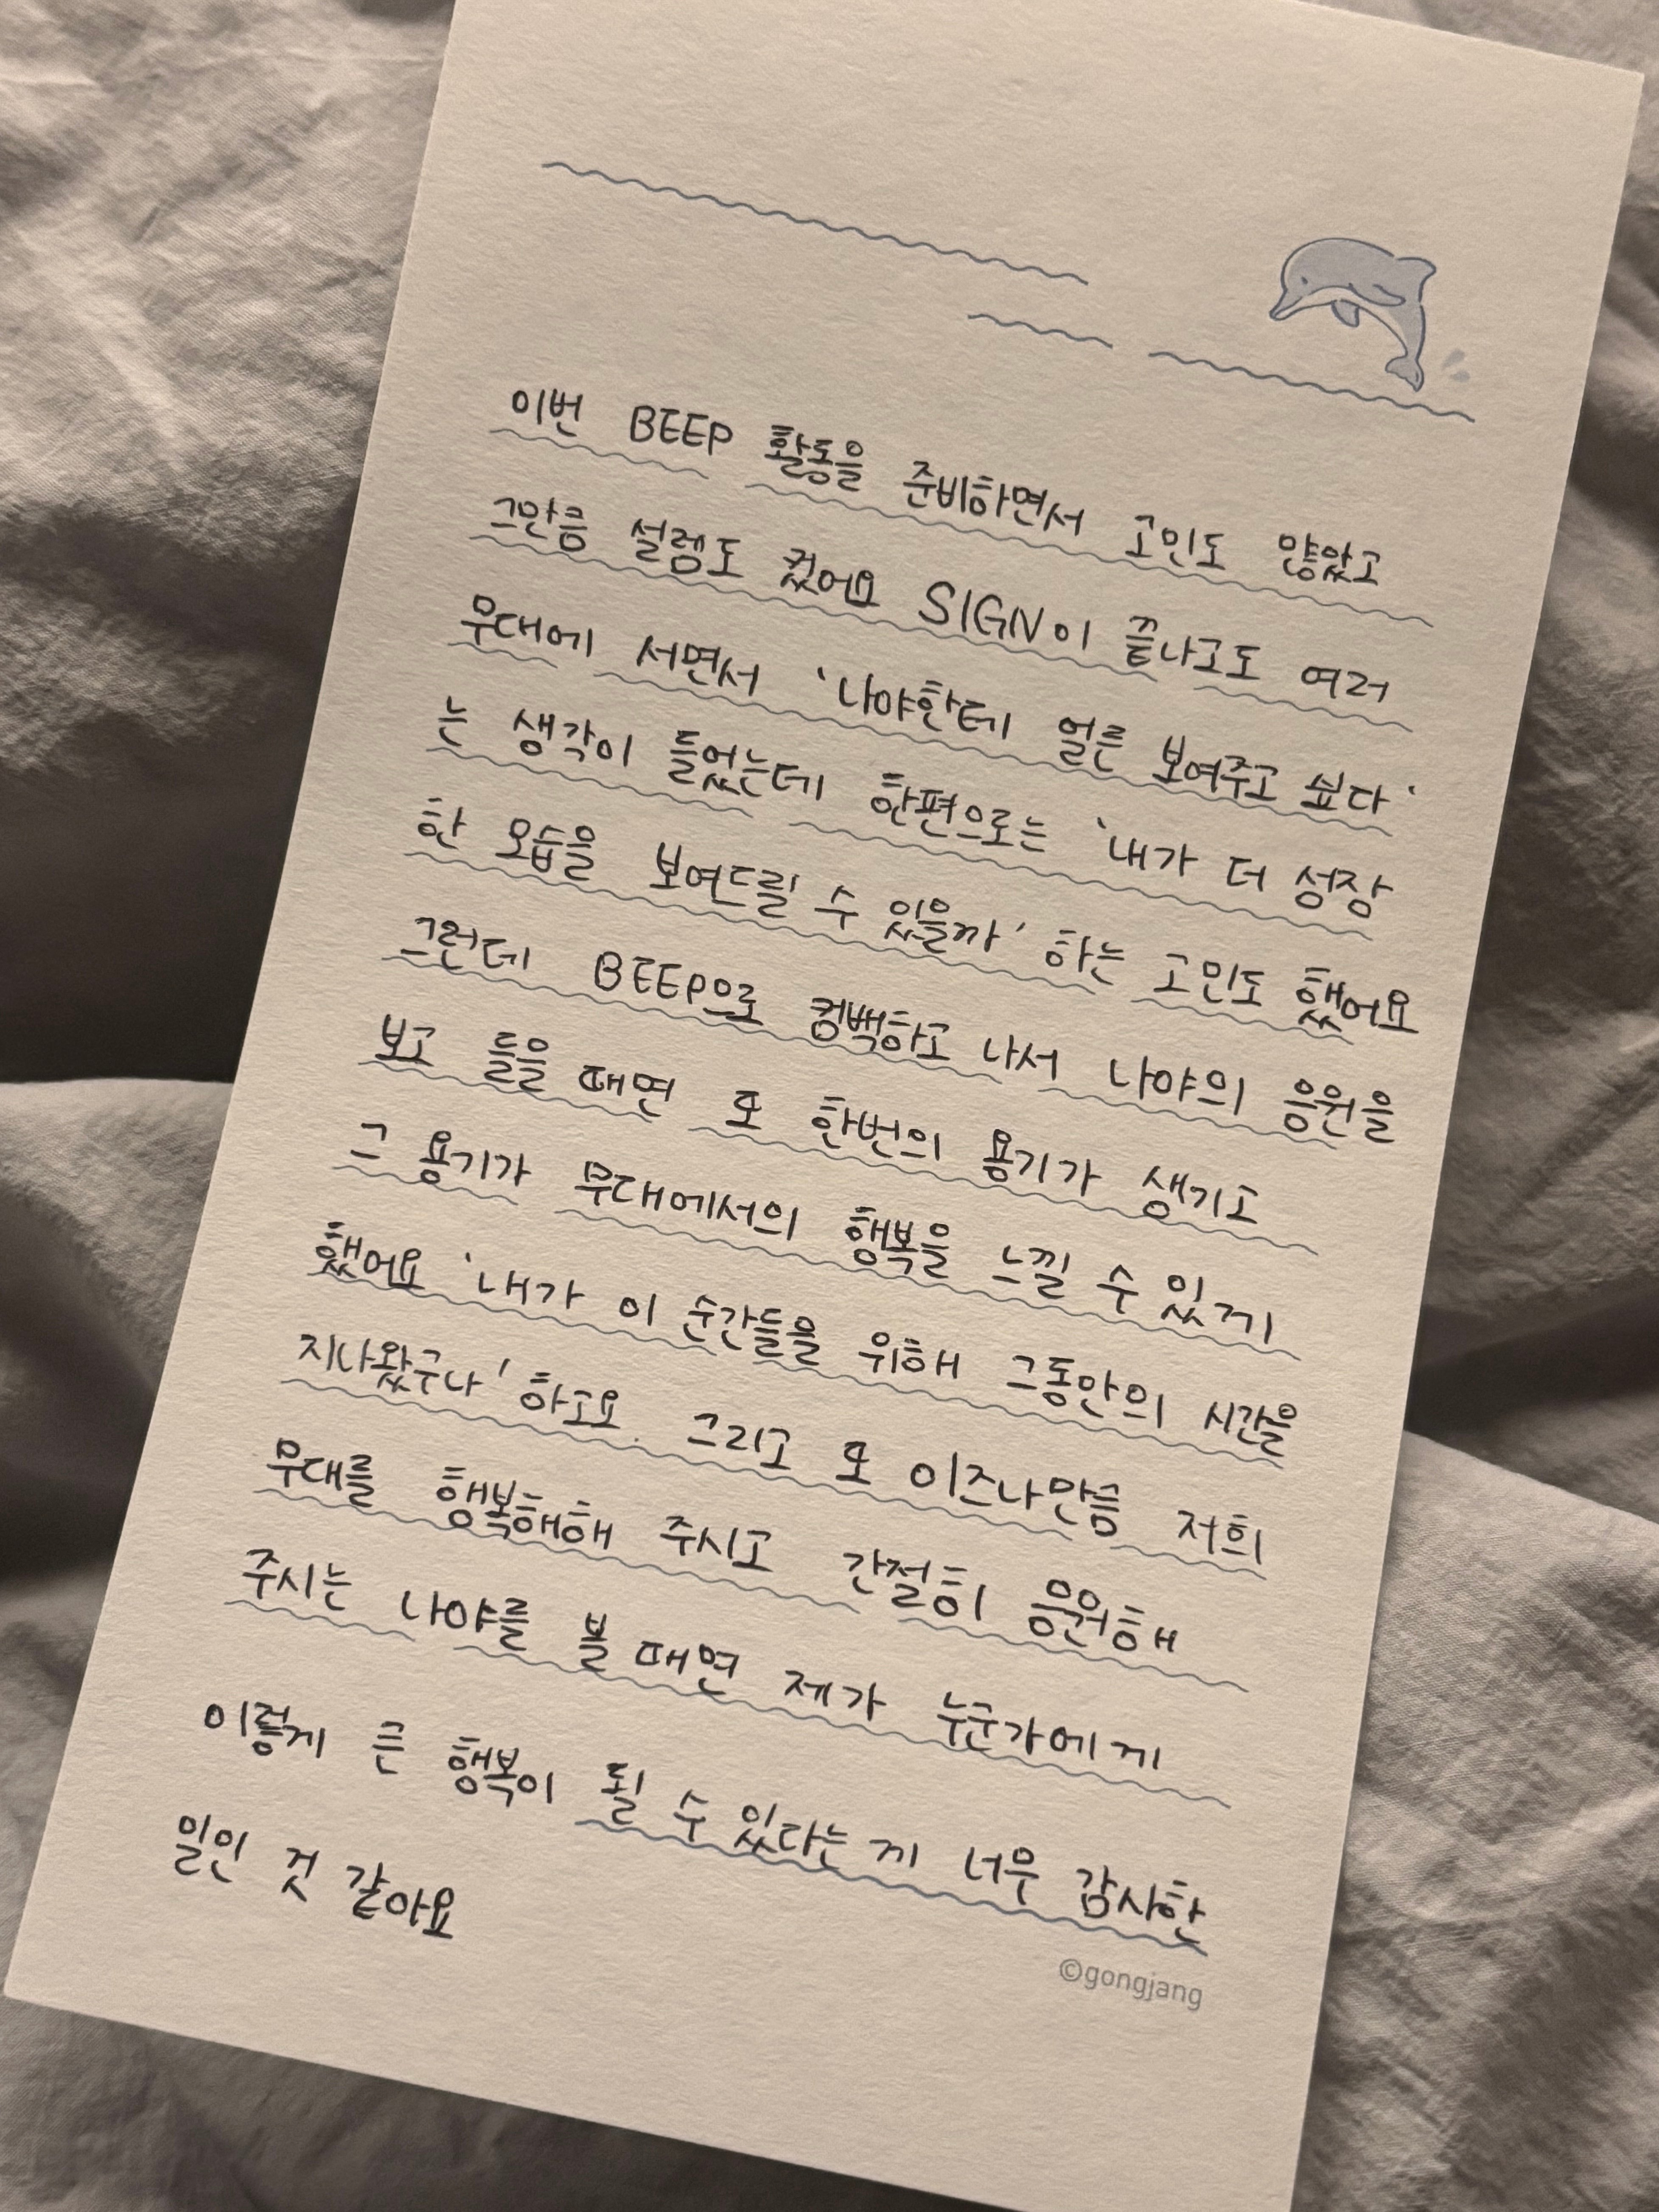 이번 BEEP 활동을 준비하면서 고민도 많았고
그만큼 설렘도 컸어요 SIGN이 끝나고도 여러
무대에 서면서 '나야한테 얼른 보여주고 싶다'
는 생각이 들었는데 한편으로는 '내가 더 성장
한 모습을 보여드릴 수 있을까' 하는 고민도 했어요
그런데 BEEP으로 컴백하고 나서 나야의 응원을
보고 들을 때면 또 한번의 용기가 생기고
그 용기가 무대에서의 행복을 느낄 수 있게
했어요 '내가 이 순간들을 위해 그동안의 시간을
지나왔구나' 하고요. 그리고 또 이즈나만큼 저희
무대를 행복해해 주시고 간절히 응원해
주시는 나야를 볼 때면 제가 누군가에게
이렇게 큰 행복이 될 수 있다는 게 너무 감사한
일인 것 같아요
©gongjang